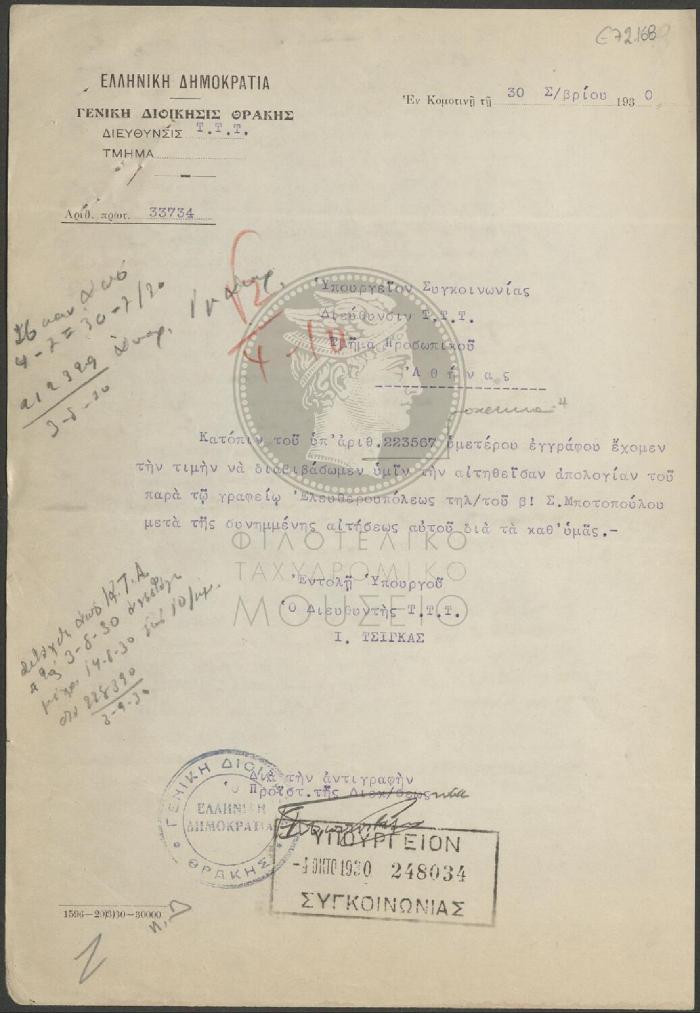 ΕΛΛΗΝΙΚΗ ΔΗΜΟΚΡΑΤΙΑ
ΓΕΝΙΚΗ ΔΙΟΙΚΗΣΙΣ ΘΡΑΚΗΣ
ΔΙΕΥΘΥΝΣΙΣ Τ.Τ.Τ.
ΤΜΗΜΑ
Ἐν Κομοτινῇ τῇ 30 Σ/βρίου 1930
Ἀριθ. πρωτ. 33734
Ὑπουργεῖον Συγκοινωνίας
Διεύθυνσιν Τ.Τ.Τ.
Τμῆμα Προσωπικοῦ
Ἀθήνας
4-10
4-7=30-7/30
212329
3-8-30
Κατόπιν τοῦ ὑπ'ἀριθ.223567 ὑμετέρου ἐγγράφου ἔχομεν
τὴν τιμὴν νὰ διαβιβάσωμεν ὑμῖν τὴν αἰτηθεῖσαν ἀπολογίαν τοῦ
παρὰ τῷ γραφείῳ Ἐλευθερουπόλεως τηλ/τοῦ β! Σ.Μποτοπούλου
μετὰ τῆς συνημμένης αἰτήσεως αὐτοῦ διὰ τὰ καθ'ὑμᾶς.-
ΦΙΛΟΤΕΛΙΚΟ
ΤΑΧΥΔΡΟΜΙΚΟ
ΜΟΥΣΕΙΟ
Ἐντολῇ Ὑπουργοῦ
Ὁ Διευθυντὴς Τ.Τ.Τ.
Ι. ΤΣΙΓΚΑΣ
3-8-30
14-8-30
228390
3-9-30
Διὰ τὴν ἀντιγραφὴν
Ὁ Προϊστ.τῆς Διεκ/σεως
ΓΕΝΙΚΗ ΔΙΟΙ
ΕΛΛΗΝΙΚΗ
ΔΗΜΟΚΡΑΤΙΑ
ΘΡΑΚΗΣ
ΥΠΟΥΡΓΕΙΟΝ
-4 ΟΚΤΟ 1930 248034
ΣΥΓΚΟΙΝΩΝΙΑΣ
1596-20)3)30-30000